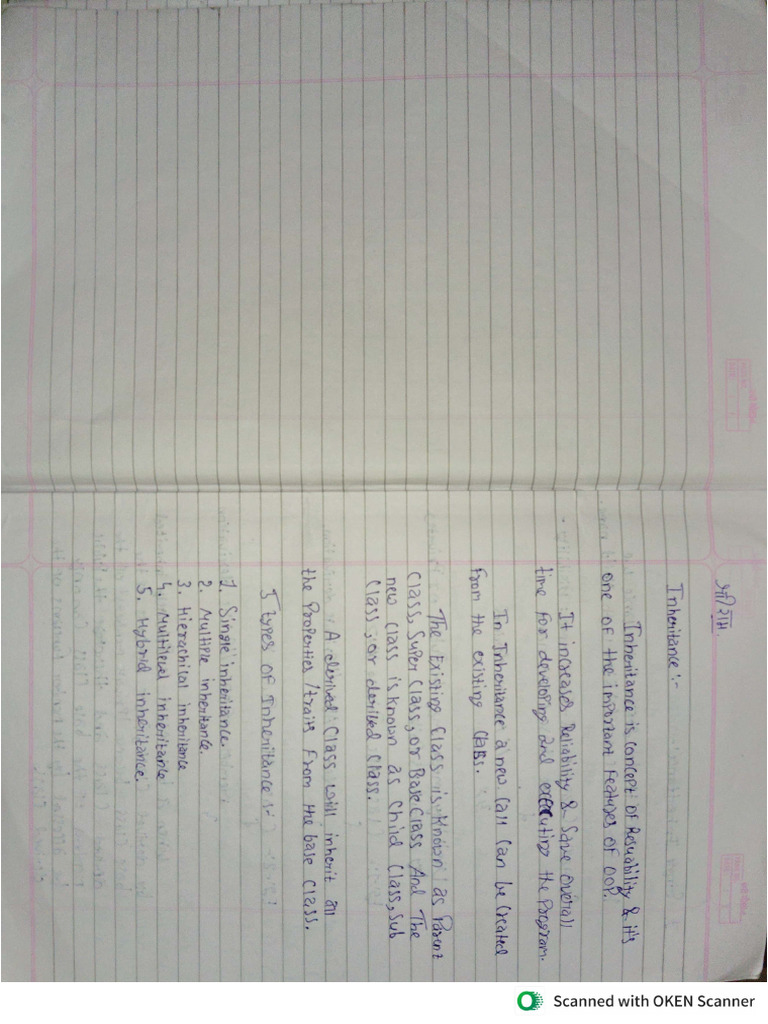 Inheritance :-
Inheritance is concept of Resuability & it's
one of the important Features of OOP.
It increases Reliability & Save overall
time for developing and executing the Program.
In Inheritance a new Call Can be Created
From the existing Class.
The Existing Class is Known as Parent
Class, Super Class, or Base Class And The
new Class is known as Child Class, Sub
Class, or derived Class.
A derived Class will inherit all
the Properties/traits From the base Class.
5 types OF Inheritance :-
1. Single inheritance.
2. Multiple inheritance.
3. Hierachical inheritance
4. Multilevel inheritance
5. Hybrid inheritance.
Scanned with OKEN Scanner